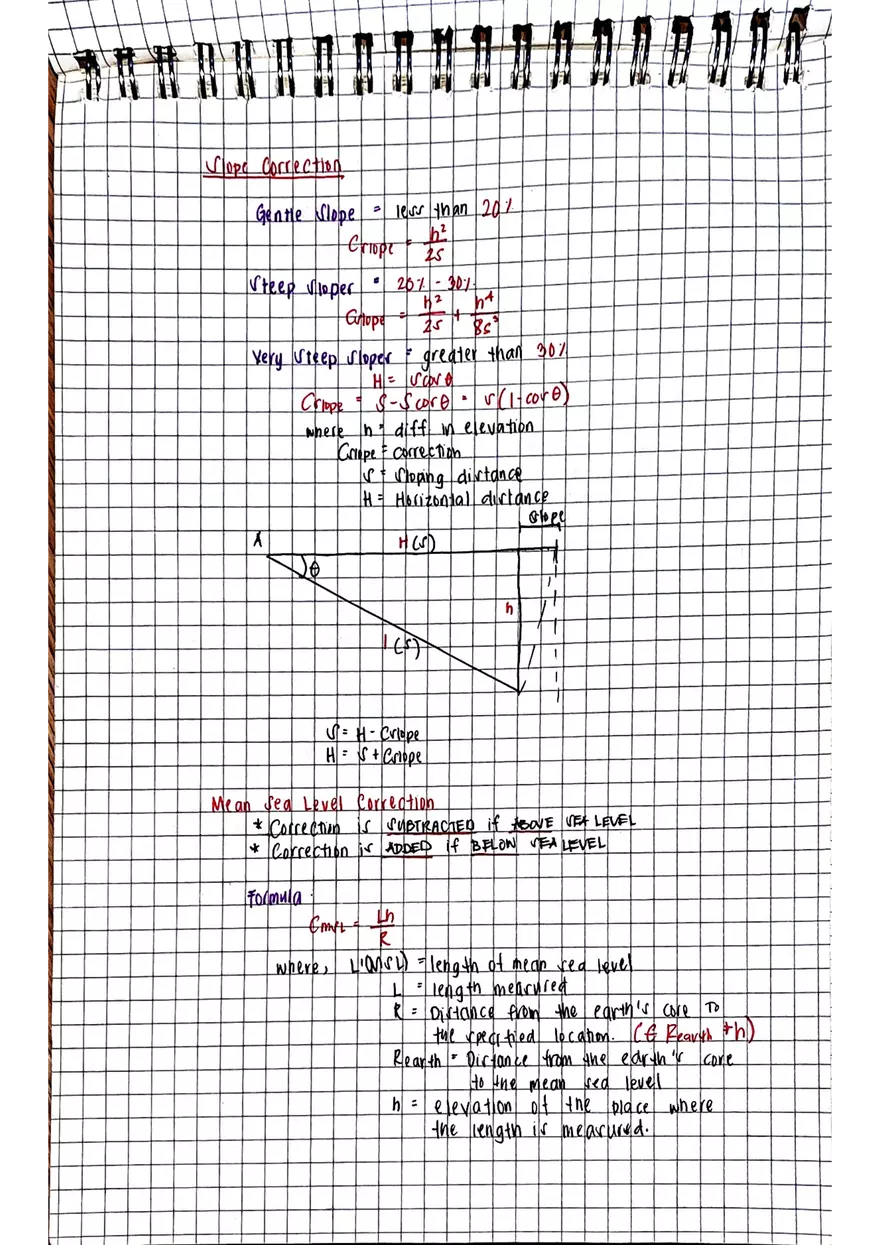 Slope Correction
Gentle Slope = less than 20%
Cslope = h²/2S
Steep Slopes = 20% - 30%
Cslope = h²/2S + h⁴/8S³
Very Steep Slopes = greater than 30%
H = S cos θ
Cslope = S - S cos θ = S(1 - cos θ)
where h = diff in elevation
Cslope = correction
S = Sloping distance
H = Horizontal distance
Cslope
A
H(S)
θ
h
(S)
S = H - Cslope
H = S + Cslope
Mean Sea Level Correction
* Correction is SUBTRACTED if ABOVE SEA LEVEL
* Correction is ADDED if BELOW SEA LEVEL
Formula:
Cmsl = Lh/R
where, L'(MSL) = length of mean sea level
L = length measured
R = Distance from the earth's core to
the specified location. ( Rearth + h)
Rearth = Distance from the earth's core
to the mean sea level
h = elevation of the place where
the length is measured.